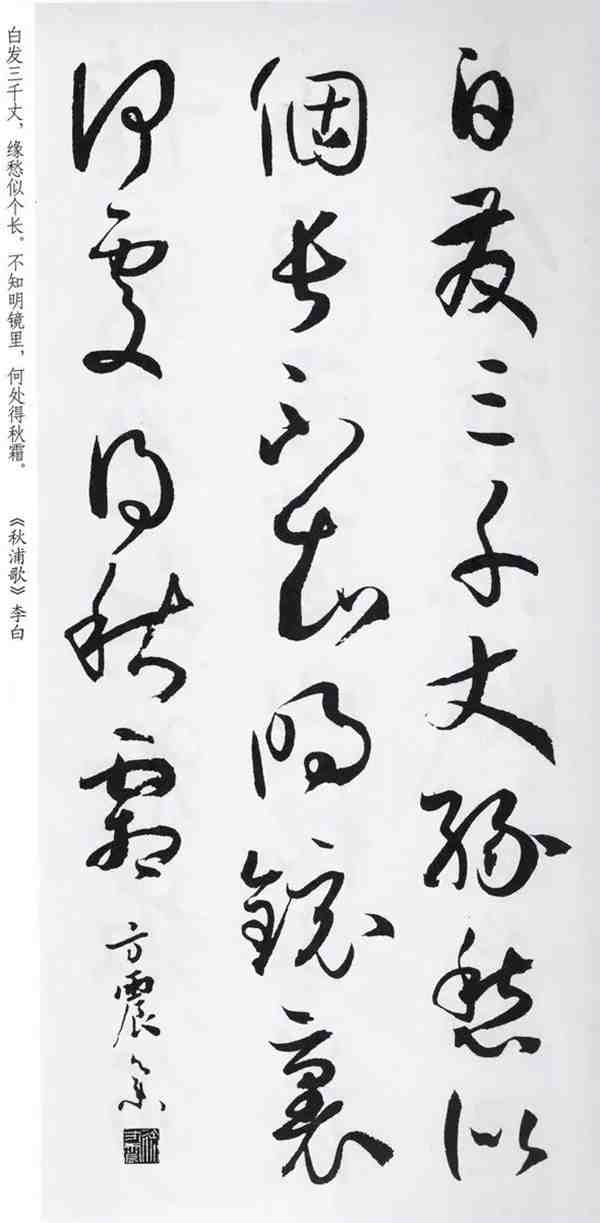 白發三千丈緣愁似
個長不知明鏡裏
何處得秋霜
方震
白发三千丈，缘愁似个长。不知明镜里，何处得秋霜。 《秋浦歌》李白